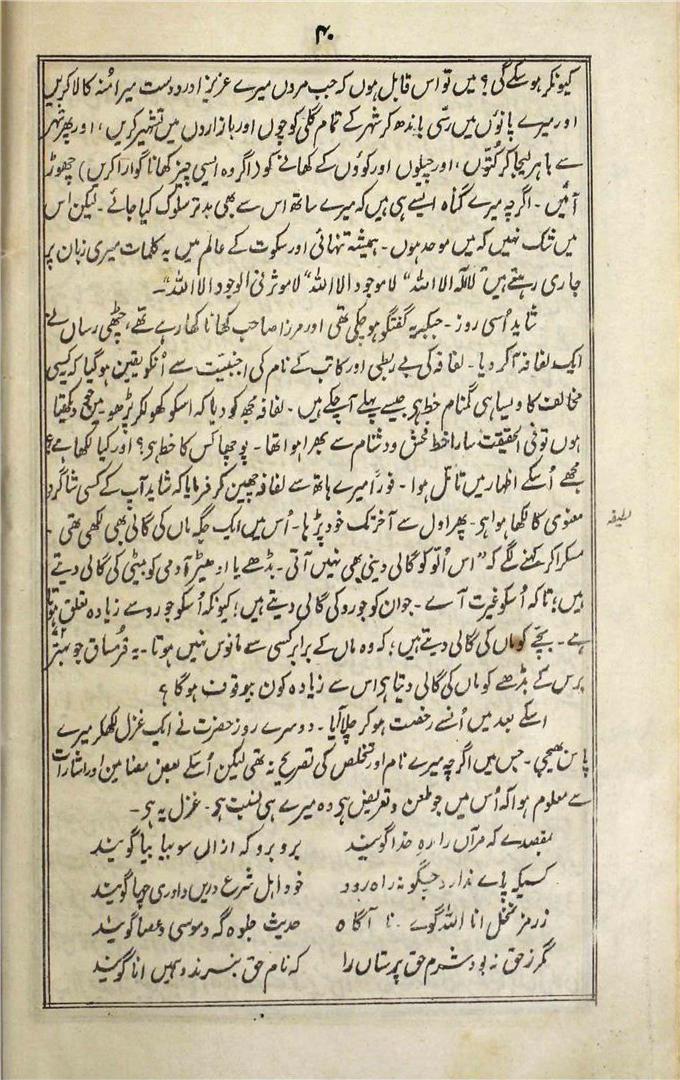 ۴۰
کیونکر ہو سکے گی؟ میں تو اس قابل ہوں کہ جب مروں میرے عزیز اور دوست میرا مُنہ کالا کریں
اور میرے پانوں میں رسّی باندھ کر شہر کے تمام گلی کوچوں اور بازاروں میں تشہیر کریں، اور پھر شہر
سے باہر لیجا کر کتّوں، اور چیلوں اور کوّوں کے کھانے کو (اگر وہ ایسی چیز کھانا گوارا کریں) چھوڑ
آئیں۔ اگرچہ میرے گناہ ایسے ہی ہیں کہ میرے ساتھ اس سے بھی بدتر سلوک کیا جائے۔ لیکن اس
میں شک نہیں کہ میں موحد ہوں۔ ہمیشہ تنہائی اور سکوت کے عالم میں یہ کلمات میری زبان پر
جاری رہتے ہیں "لا الٰہ الا اللہ" لا موجود الا اللہ" لا موثر فی الوجود الا اللہ"۔
شاید اُسی روز۔ جبکہ یہ گفتگو ہو چکی تھی اور مرزا صاحب کھانا کھا رہے تھے، چٹھی رساں نے
ایک لفافہ آکر دیا۔ لفافہ کی بے ربطی اور کاتب کے نام کی اجنبیت سے اُنکو یقین ہو گیا کہ کسی
مخالف کا ویسا ہی گمنام خط ہی جیسے پہلے آچکے ہیں۔ لفافہ مجھ کو دیا کہ اسکو کھولکر پڑھو۔ میں جو دیکھتا
ہوں تو فی الحقیقت سارا خط فحش و دشنام سے بھرا ہوا تھا۔ پوچھا کس کا خط ہی؟ اور کیا لکھا ہے؟
مجھے اُسکے اظہار میں تامّل ہوا۔ فوراً میرے ہاتھ سے لفافہ چھین کر فرمایا کہ شاید آپ کے کسی شاگرد
معنوی کا لکھا ہوا ہی۔ پھر اول سے آخر تک خود پڑہا۔ اُس میں ایک جگہ ماں کی گالی بھی لکھی تھی۔
لطیفہ
مسکرا کر کہنے لگے کہ "اس اُلّو کو گالی دینی بھی نہیں آتی۔ بڈھے یا ادھیڑ آدمی کو بیٹی کی گالی دیتے
ہیں؛ تاکہ اُسکو غیرت آے۔ جوان کو جورو کی گالی دیتے ہیں؛ کیونکہ اُسکو جورو سے زیادہ تعلق ہوتا
ہے۔ بچّے کو ماں کی گالی دیتے ہیں؛ کہ وہ ماں کے برابر کسی سے مانوس نہیں ہوتا۔ یہ قرمساق جو بہتر
برس کے بڈھے کو ماں کی گالی دیتا ہی اس سے زیادہ کون بیوقوف ہوگا؟
اسکے بعد میں اُنسے رخصت ہو کر چلا آیا۔ دوسرے روز حضرت نے ایک غزل لکھکر میرے
پاس بھیجی۔ جس میں اگرچہ میرے نام اور تخلص کی تصریح نہ تھی لیکن اُسکے بعض مضامین اور اشارات
سے معلوم ہوا کہ اُس میں جو طعن و تعریض ہی وہ میرے ہی نسبت ہی۔ غزل یہ ہی۔
بمقصدے کہ مرآں را رہِ خدا گویند برو برو کہ ازاں سو بیا بیا گویند
کسیکہ پاے ندارد چگونہ راہ رود خود اہل شرع دریں داوری چہا گویند
ز رمز نخلِ انا اللہ گوے نا آگاہ حدیث جلوہ گہ و موسی و عصا گویند
مگر ز حق نہ بود شرم حق پرستاں را کہ نام حق نبرند و ہمیں انا گویند